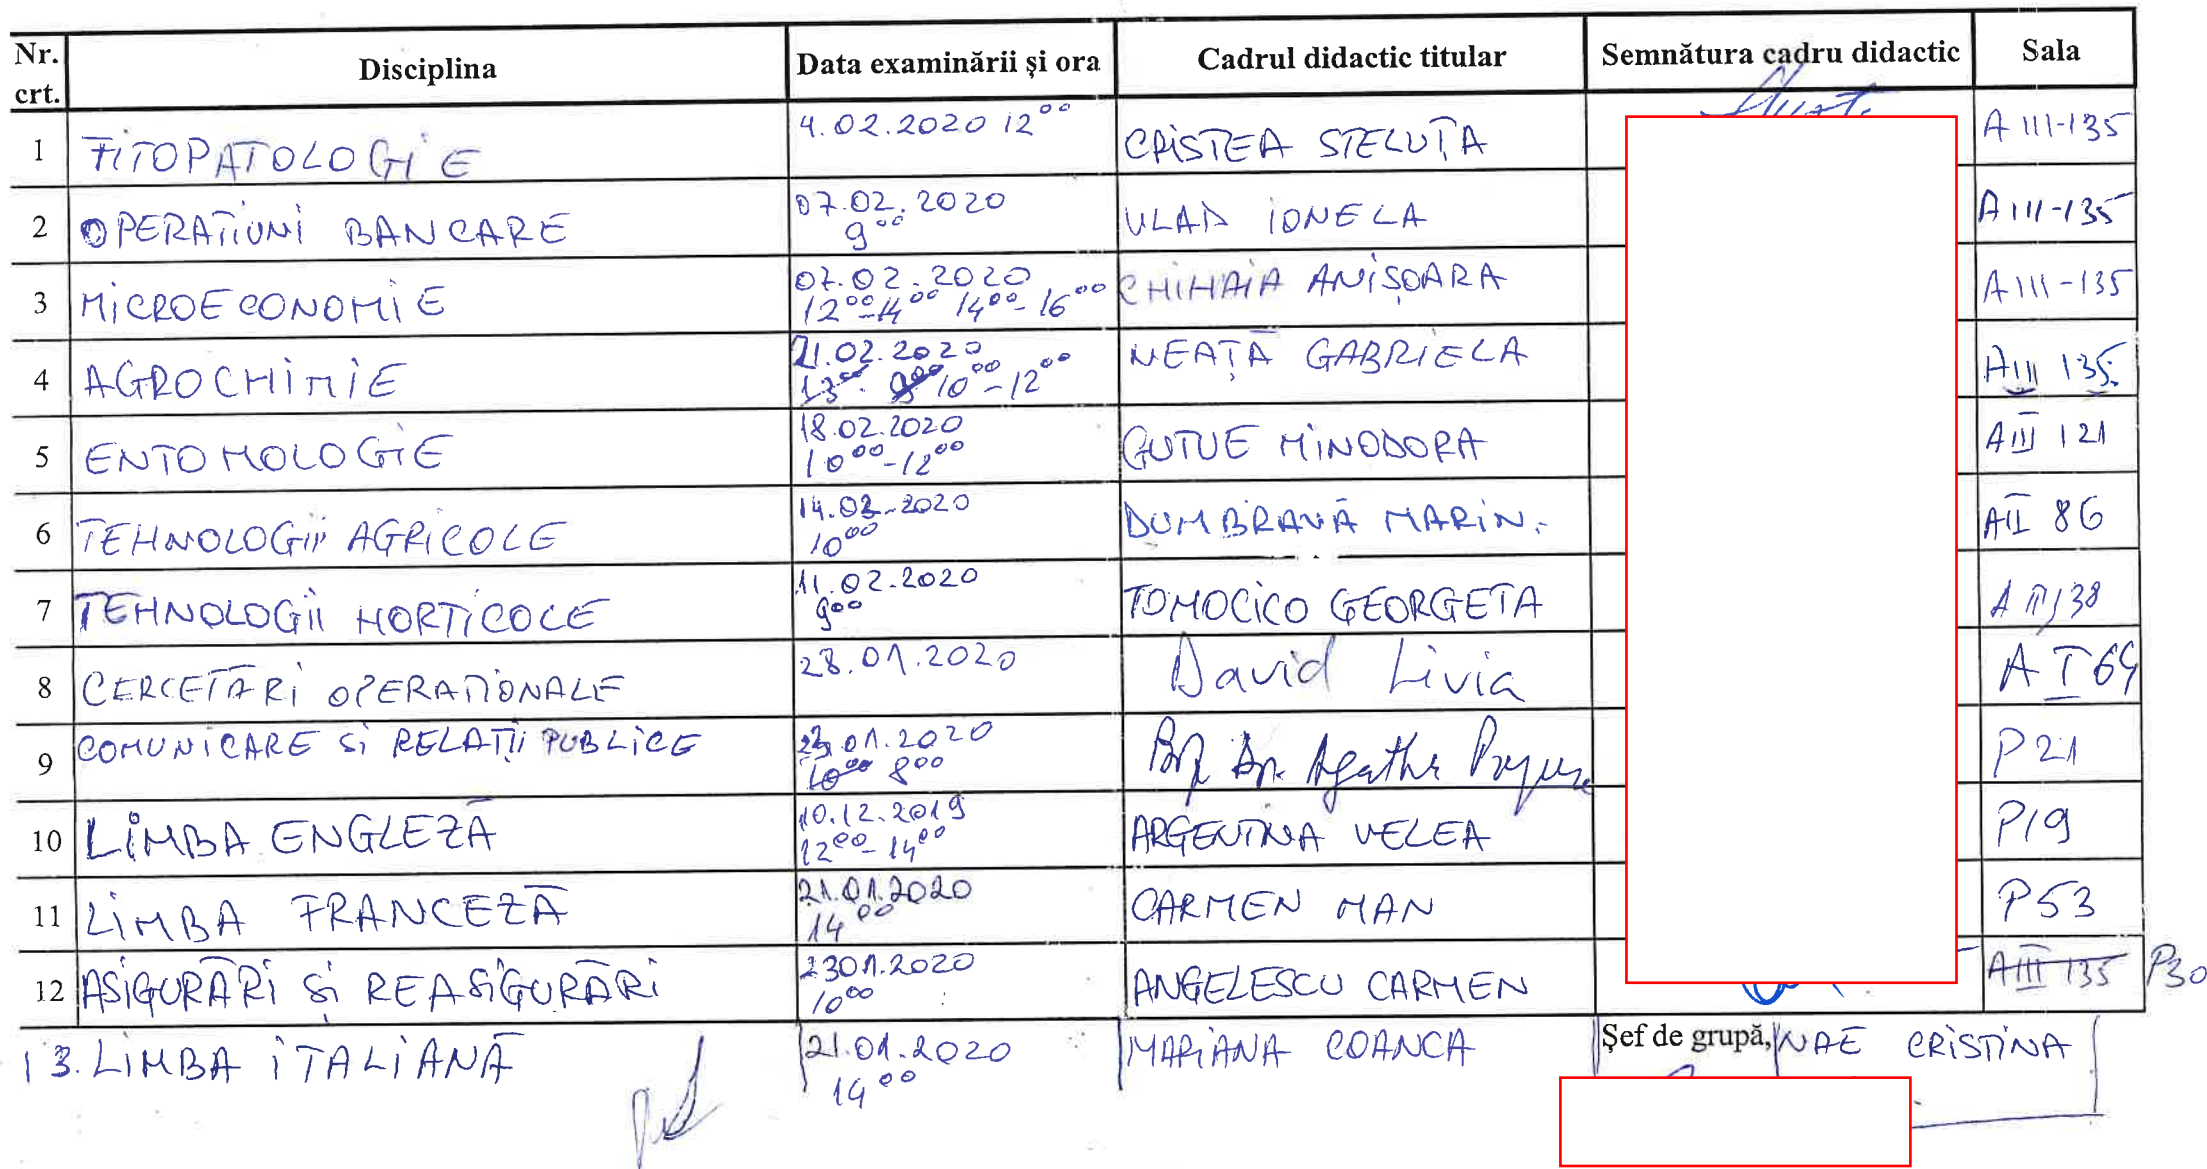 Nr. crt. Disciplina Data examinării și ora Cadrul didactic titular Semnătura cadru didactic Sala
1 FITOPATOLOGIE 4.02.2020 12⁰⁰ CRISTEA STELUȚA A III-135
2 OPERATIUNI BANCARE 07.02.2020 9⁰⁰ VLAD IONELA A III-135
3 MICROECONOMIE 07.02.2020 12⁰⁰-14⁰⁰ 14⁰⁰-16⁰⁰ CHIHAIA ANIȘOARA A III-135
4 AGROCHIMIE 21.02.2020 13⁰⁰ 9⁰⁰ 10⁰⁰-12⁰⁰ NEAȚĂ GABRIELA A III 135
5 ENTOMOLOGIE 18.02.2020 10⁰⁰-12⁰⁰ GUTUE MINODORA A III 121
6 TEHNOLOGII AGRICOLE 14.02.2020 10⁰⁰ DUMBRAVĂ MARIN A II 86
7 TEHNOLOGII HORTICOLE 11.02.2020 9⁰⁰ TOMOCICO GEORGETA A II 38
8 CERCETĂRI OPERATIONALE 28.01.2020 David Livia A I 64
9 COMUNICARE SI RELAȚII PUBLICE 23.01.2020 10⁰⁰ 8⁰⁰ Agatha P21
10 LIMBA ENGLEZĂ 10.12.2019 12⁰⁰-14⁰⁰ ARGENTINA VELEA P19
11 LIMBA FRANCEZĂ 21.01.2020 14⁰⁰ CARMEN MAN P53
12 ASIGURĂRI ȘI REASIGURĂRI 2301.2020 10⁰⁰ ANGELESCU CARMEN A III 135 P30
13. LIMBA ITALIANĂ 21.01.2020 14⁰⁰ MARIANA COANCA Șef de grupă, NAE CRISTINA